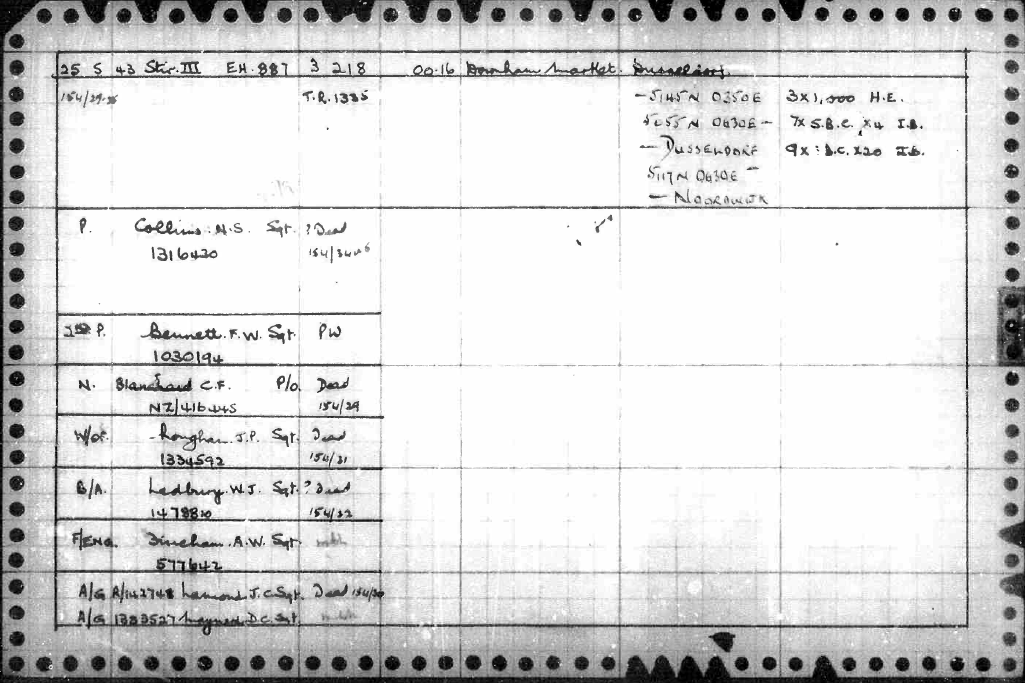 25 5 43 Stir.III EH.887 3 218 00.16 Downham Market. Dusseldorf.
154/29-35 T.R.1335 - 5145N 0350E 3x1,000 H.E.
5055N 0630E - 7x S.B.C. x4 I.B.
- DUSSELDORF 9x S.B.C. x20 I.B.
5117N 0630E -
- NOORDWIJK
P. Collins. N.S. Sgt. ? Dead
1316420 154/34
P. Bennett. F.W. Sgt. PW
1030194
N. Blanchard C.F. P/o. Dead
NZ/416445 154/29
W/OP. J.P. Sgt. Dead
1334592 154/31
B/A. Ledbury. W.J. Sgt. ? Dead
1478820 154/32
F/ENG. A.W. Sgt.
577642
A/G R/142748 J.C. Sgt. Dead 154/30
A/G 1383527 D.C. Sgt.